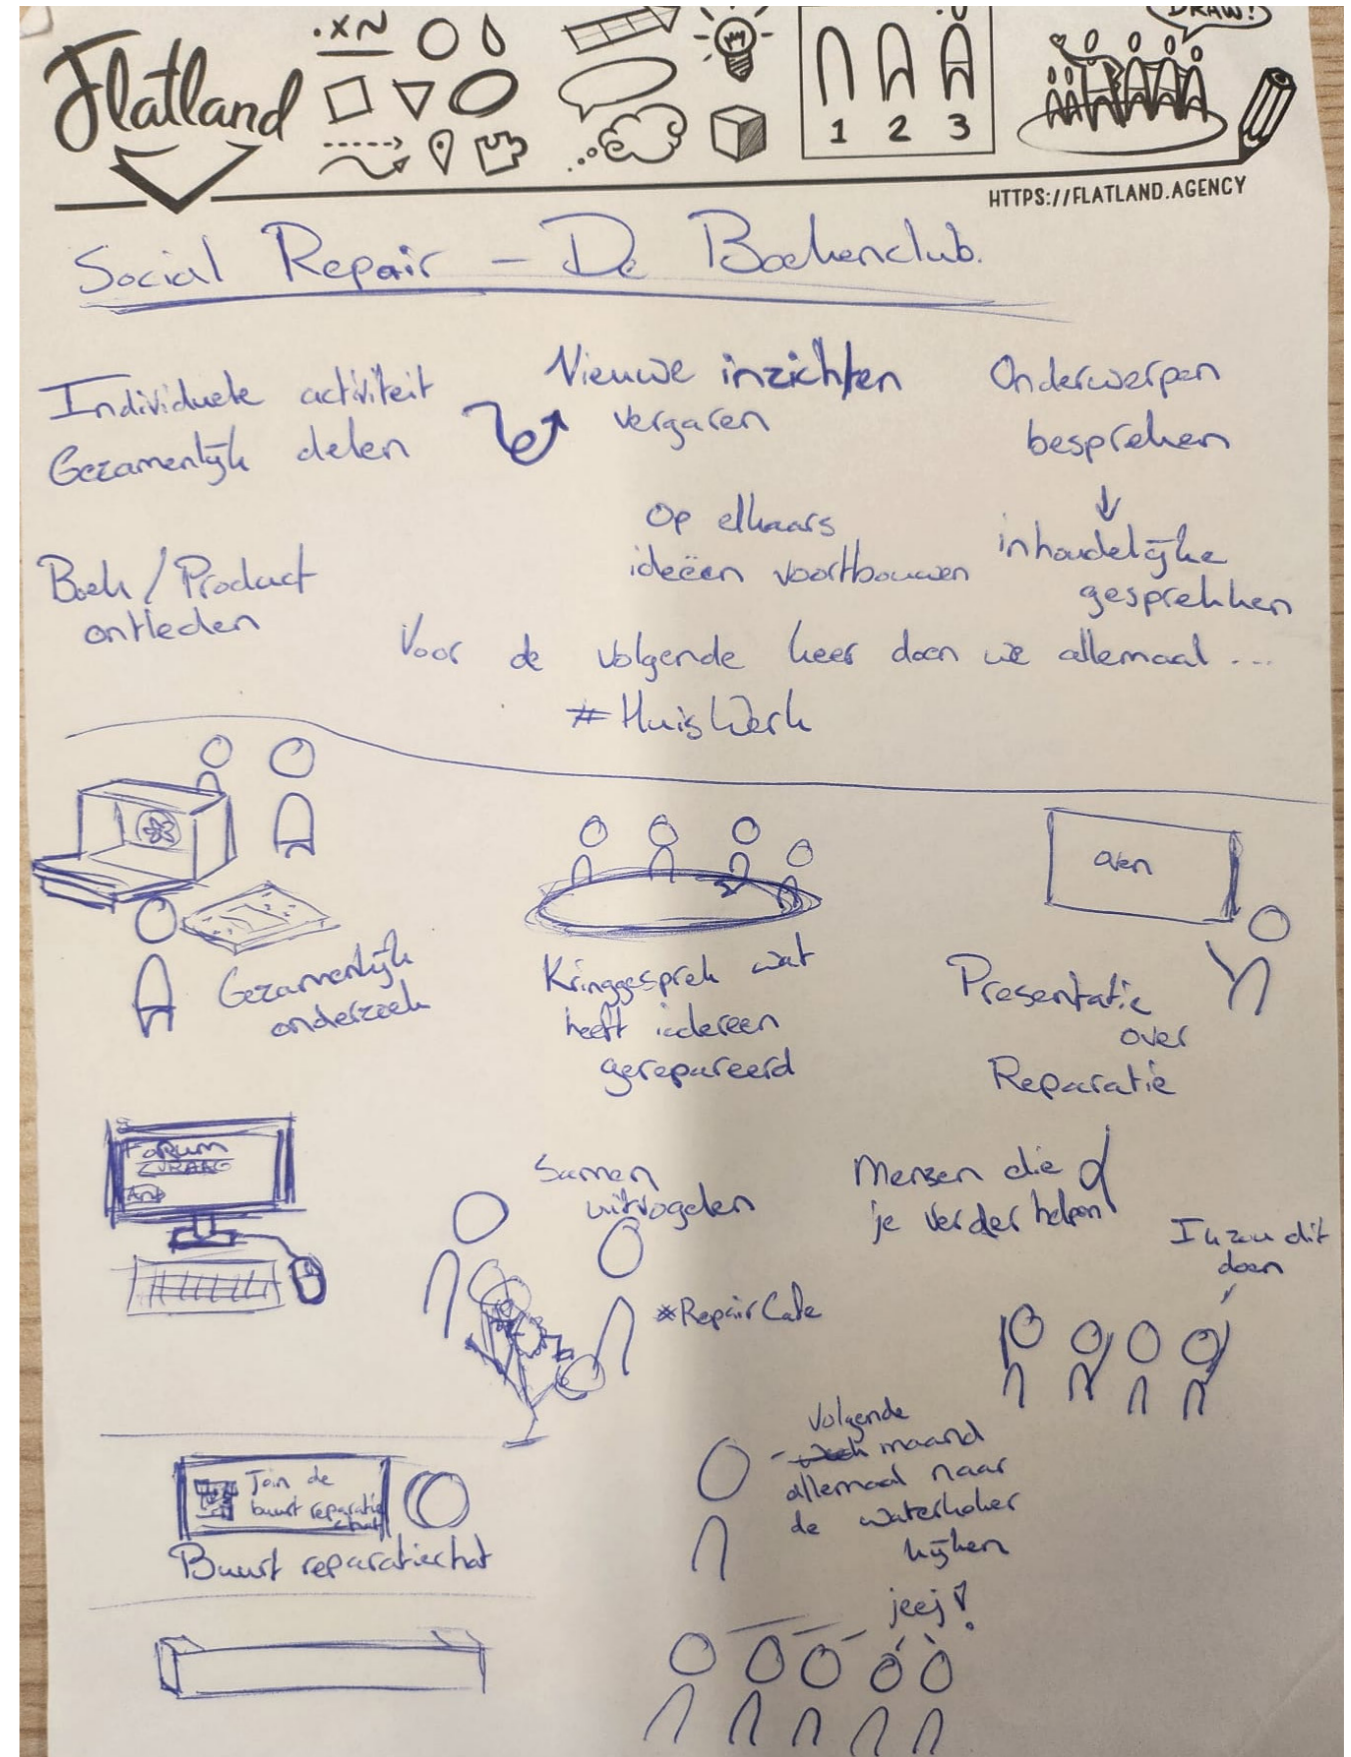 Flatland
.XN
1 2 3
DRAW!
HTTPS://FLATLAND.AGENCY
Social Repair - De Boekenclub.
Individuele activiteit
Gezamenlijk delen
Nieuwe inzichten
vergaren
Onderwerpen
bespreken
↓
inhoudelijke
gesprekken
Op elkaars
ideeën voortbouwen
Boek / Product
ontleden
Voor de volgende keer doen we allemaal ...
#HuisWerk
Gezamenlijk
onderzoek
Kringgesprek wat
heeft iedereen
gerepareerd
oven
Presentatie
over
Reparatie
Forum
VRAAG
Samen
uitvogelen
#RepairCafe
Mensen die
je verder helpen
Ik zou dit
doen
Join de
buurt reparatie
chat
Buurt reparatiechat
Volgende
maand
allemaal naar
de waterkoker
kijken
jeej!